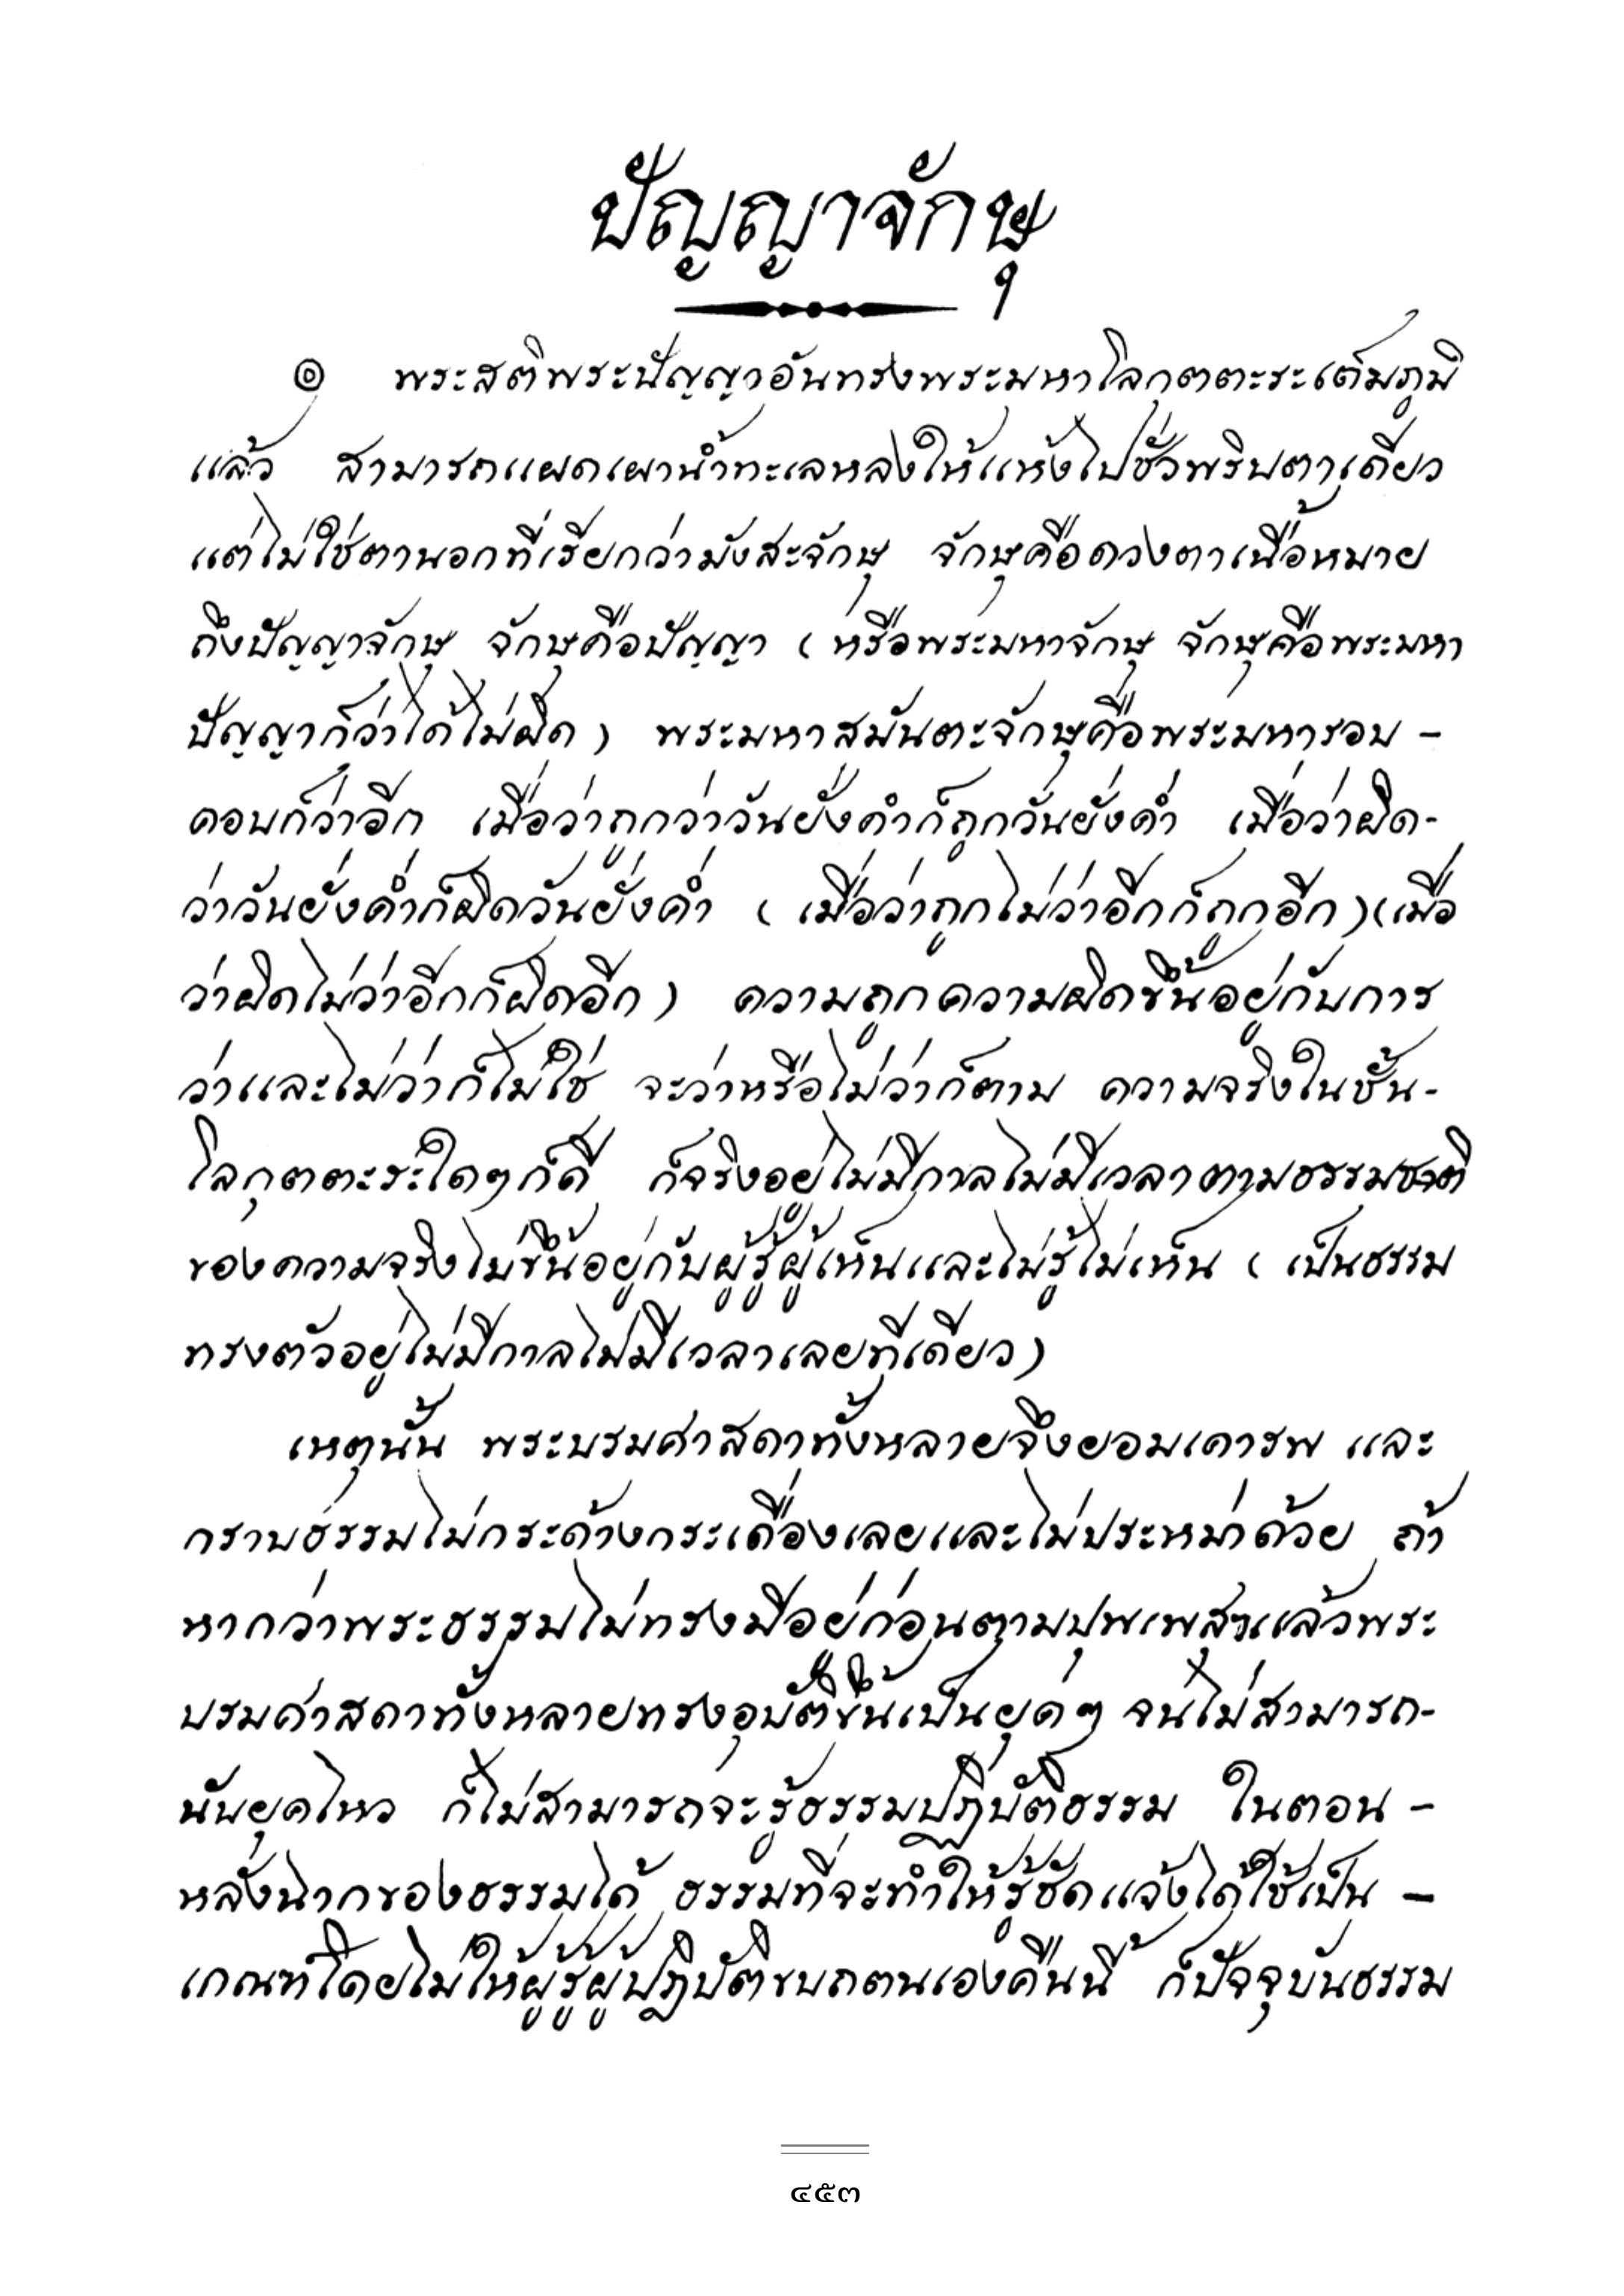 ปัญญาจักษุ
๏ พระสติพระปัญญาอันทรงพระมหาโลกุตตะระเต็มภูมิ
แล้ว สามารถแผดเผาน้ำทะเลหลงให้แห้งไปชั่วพริบตาเดียว
แต่ไม่ใช่ตานอกที่เรียกว่ามังสะจักษุ จักษุคือดวงตาเนื้อหมาย
ถึงปัญญาจักษุ จักษุคือปัญญา ( หรือพระมหาจักษุ จักษุคือพระมหา
ปัญญาก็ว่าได้ไม่ผิด ) พระมหาสมันตะจักษุคือพระมหารอบ -
คอบก็ว่าอีก เมื่อว่าถูกว่าวันยั่งค่ำก็ถูกวันยั่งค่ำ เมื่อว่าผิด-
ว่าวันยั่งค่ำก็ผิดวันยั่งค่ำ ( เมื่อว่าถูกไม่ว่าอีกก็ถูกอีก )(เมื่อ
ว่าผิดไม่ว่าอีกก็ผิดอีก ) ความถูกความผิดขึ้นอยู่กับการ
ว่าและไม่ว่าก็ไม่ใช่ จะว่าหรือไม่ว่าก็ตาม ความจริงในชั้น-
โลกุตตะระใดๆก็ดี ก็จริงอยู่ไม่มีกาลไม่มีเวลาตามธรรมชาติ
ของความจริงไม่ขึ้นอยู่กับผู้รู้ผู้เห็นและไม่รู้ไม่เห็น ( เป็นธรรม
ทรงตัวอยู่ไม่มีกาลไม่มีเวลาเลยทีเดียว )
เหตุนั้น พระบรมศาสดาทั้งหลายจึงยอมเคารพ และ
กราบธรรมไม่กระด้างกระเดื่องเลยและไม่ประหม่าด้วย ถ้า
หากว่าพระธรรมไม่ทรงมีอยู่ก่อนตามปุพเพสุๆแล้วพระ
บรมศาสดาทั้งหลายทรงอุบัติขึ้นเป็นยุคๆ จนไม่สามารถ-
นับยุคไหว ก็ไม่สามารถจะรู้ธรรมปฏิบัติธรรม ในตอน -
หลังนากของธรรมได้ ธรรมที่จะทำให้รู้ชัดแจ้งได้ใช้เป็น -
เกณฑ์โดยไม่ให้ผู้รู้ผู้ปฏิบัติขบถตนเองคืนนี้ ก็ปัจจุบันธรรม
๔๕๓